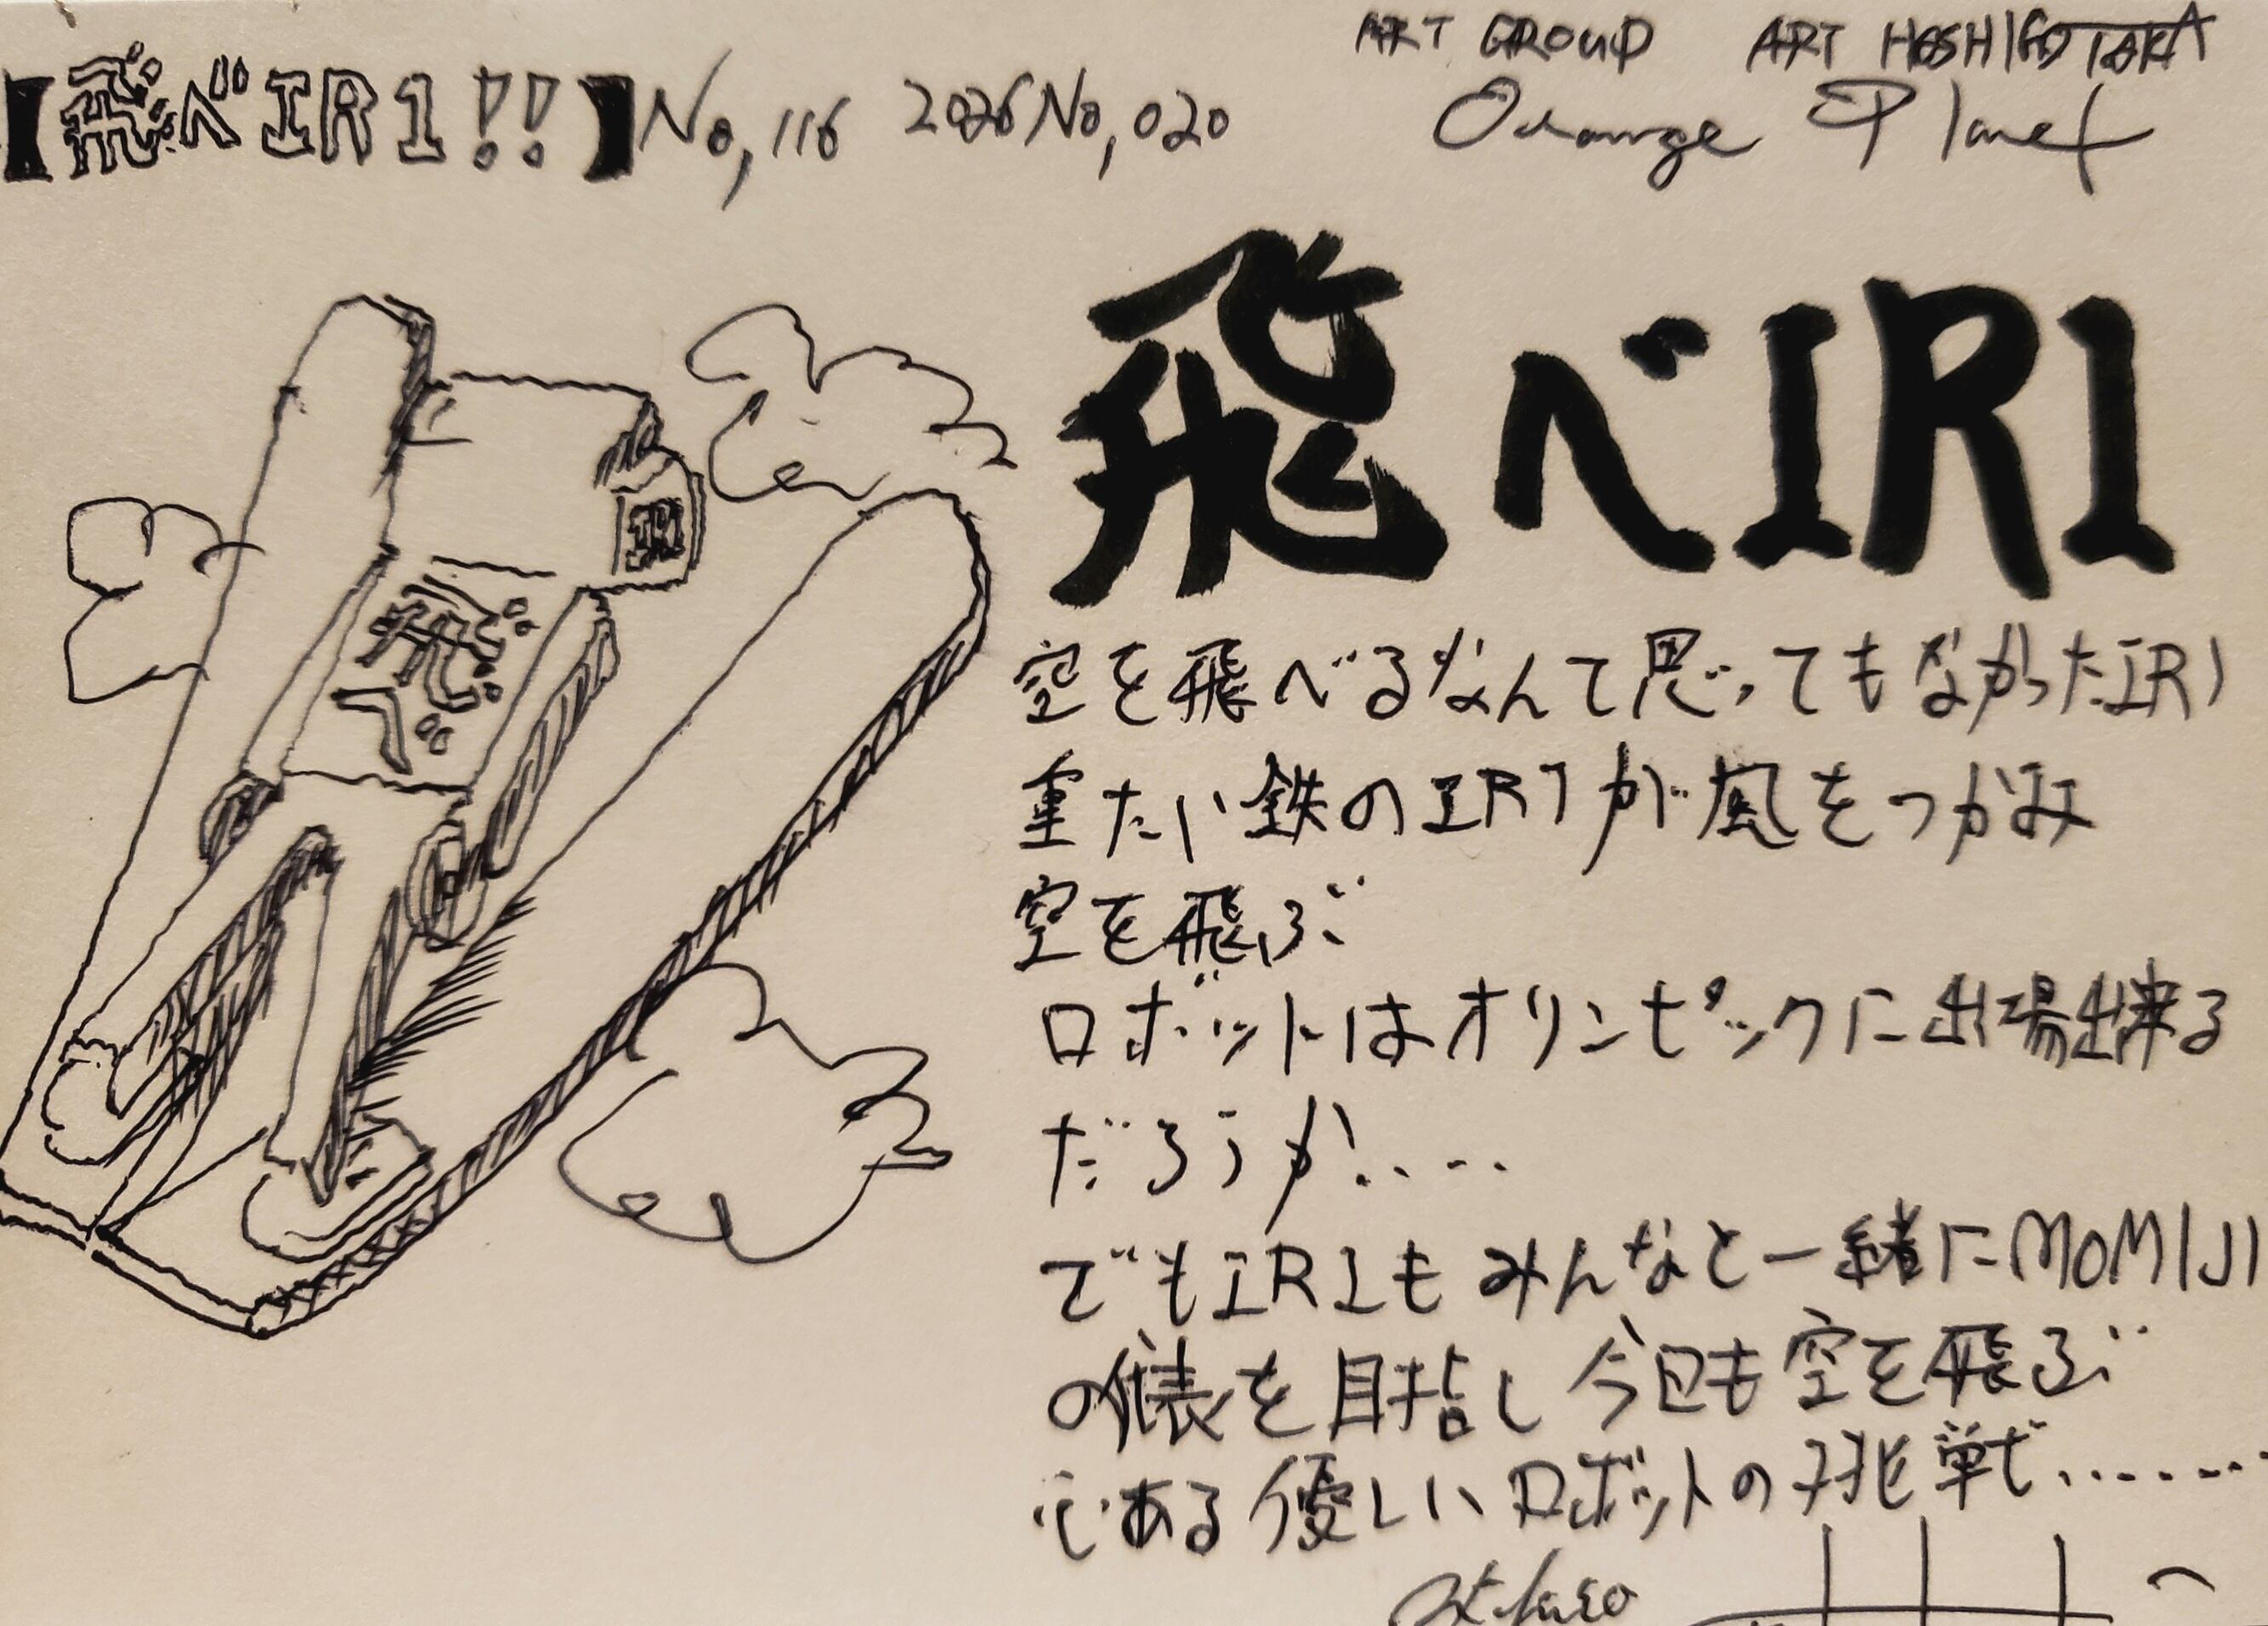 ART GROUP ART HOSHIGOTAKA
【飛べIR1!!】No,116 2026No,020
Orange Planet
飛べIR1
IR1
飛べ
空を飛べるなんて思ってもなかったIR1
重たい鉄のIR1が風をつかみ
空を飛ぶ
ロボットはオリンピックに出場出来る
だろうか....
でもIR1もみんなと一緒にMOMIJI
の俵を目指し今日も空を飛ぶ
心ある優しいロボットの挑戦........